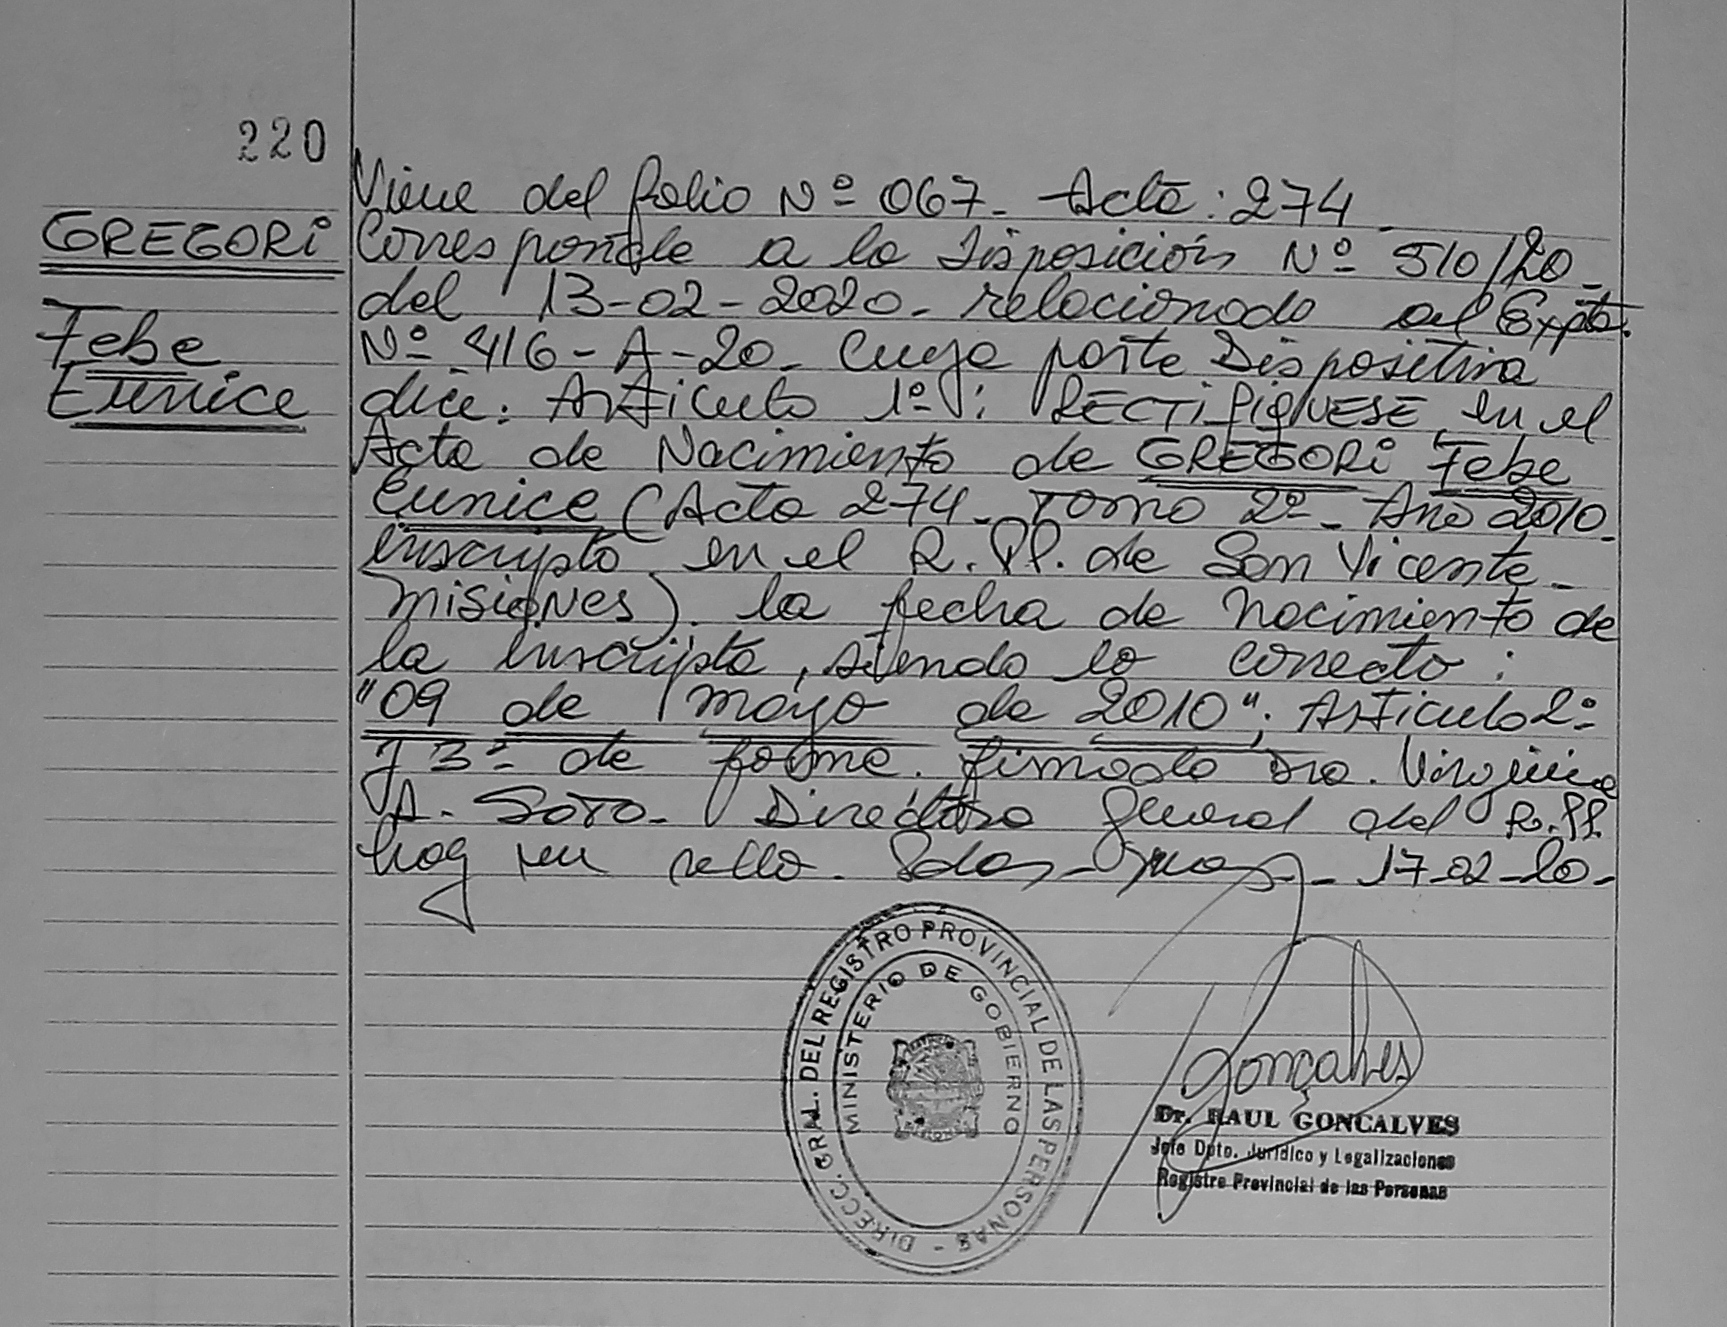 220
GREGORi
Febe
Eunice
Viene del folio Nº 067- Acta: 274
Corresponde a la Disposición Nº 510/20-
del 13-02-2020- relacionado al Expte.
Nº 416-A-20- Cuya parte Dispositiva
dice: Artículo 1º: RECTIFIQUESE en el
Acta de Nacimiento de GREGORi Febe
Eunice (Acta 274- Tomo 2º- Año 2010-
inscripto en el R.PP. de San Vicente-
Misiones). la fecha de nacimiento de
la inscripta, siendo lo correcto:
"09 de mayo de 2010"; Artículo 2º
y 3º de forma. firmado Dra. Virginia
A. Soto- Directora General del R.PP.
hay un sello. 17-02-20-
DIRECC. GRAL. DEL REGISTRO PROVINCIAL DE LAS PERSONAS -
MINISTERIO DE GOBIERNO
Gonçalves
Dr. RAUL GONCALVES
Jefe Dpto. Jurídico y Legalizaciones
Registro Provincial de las Personas